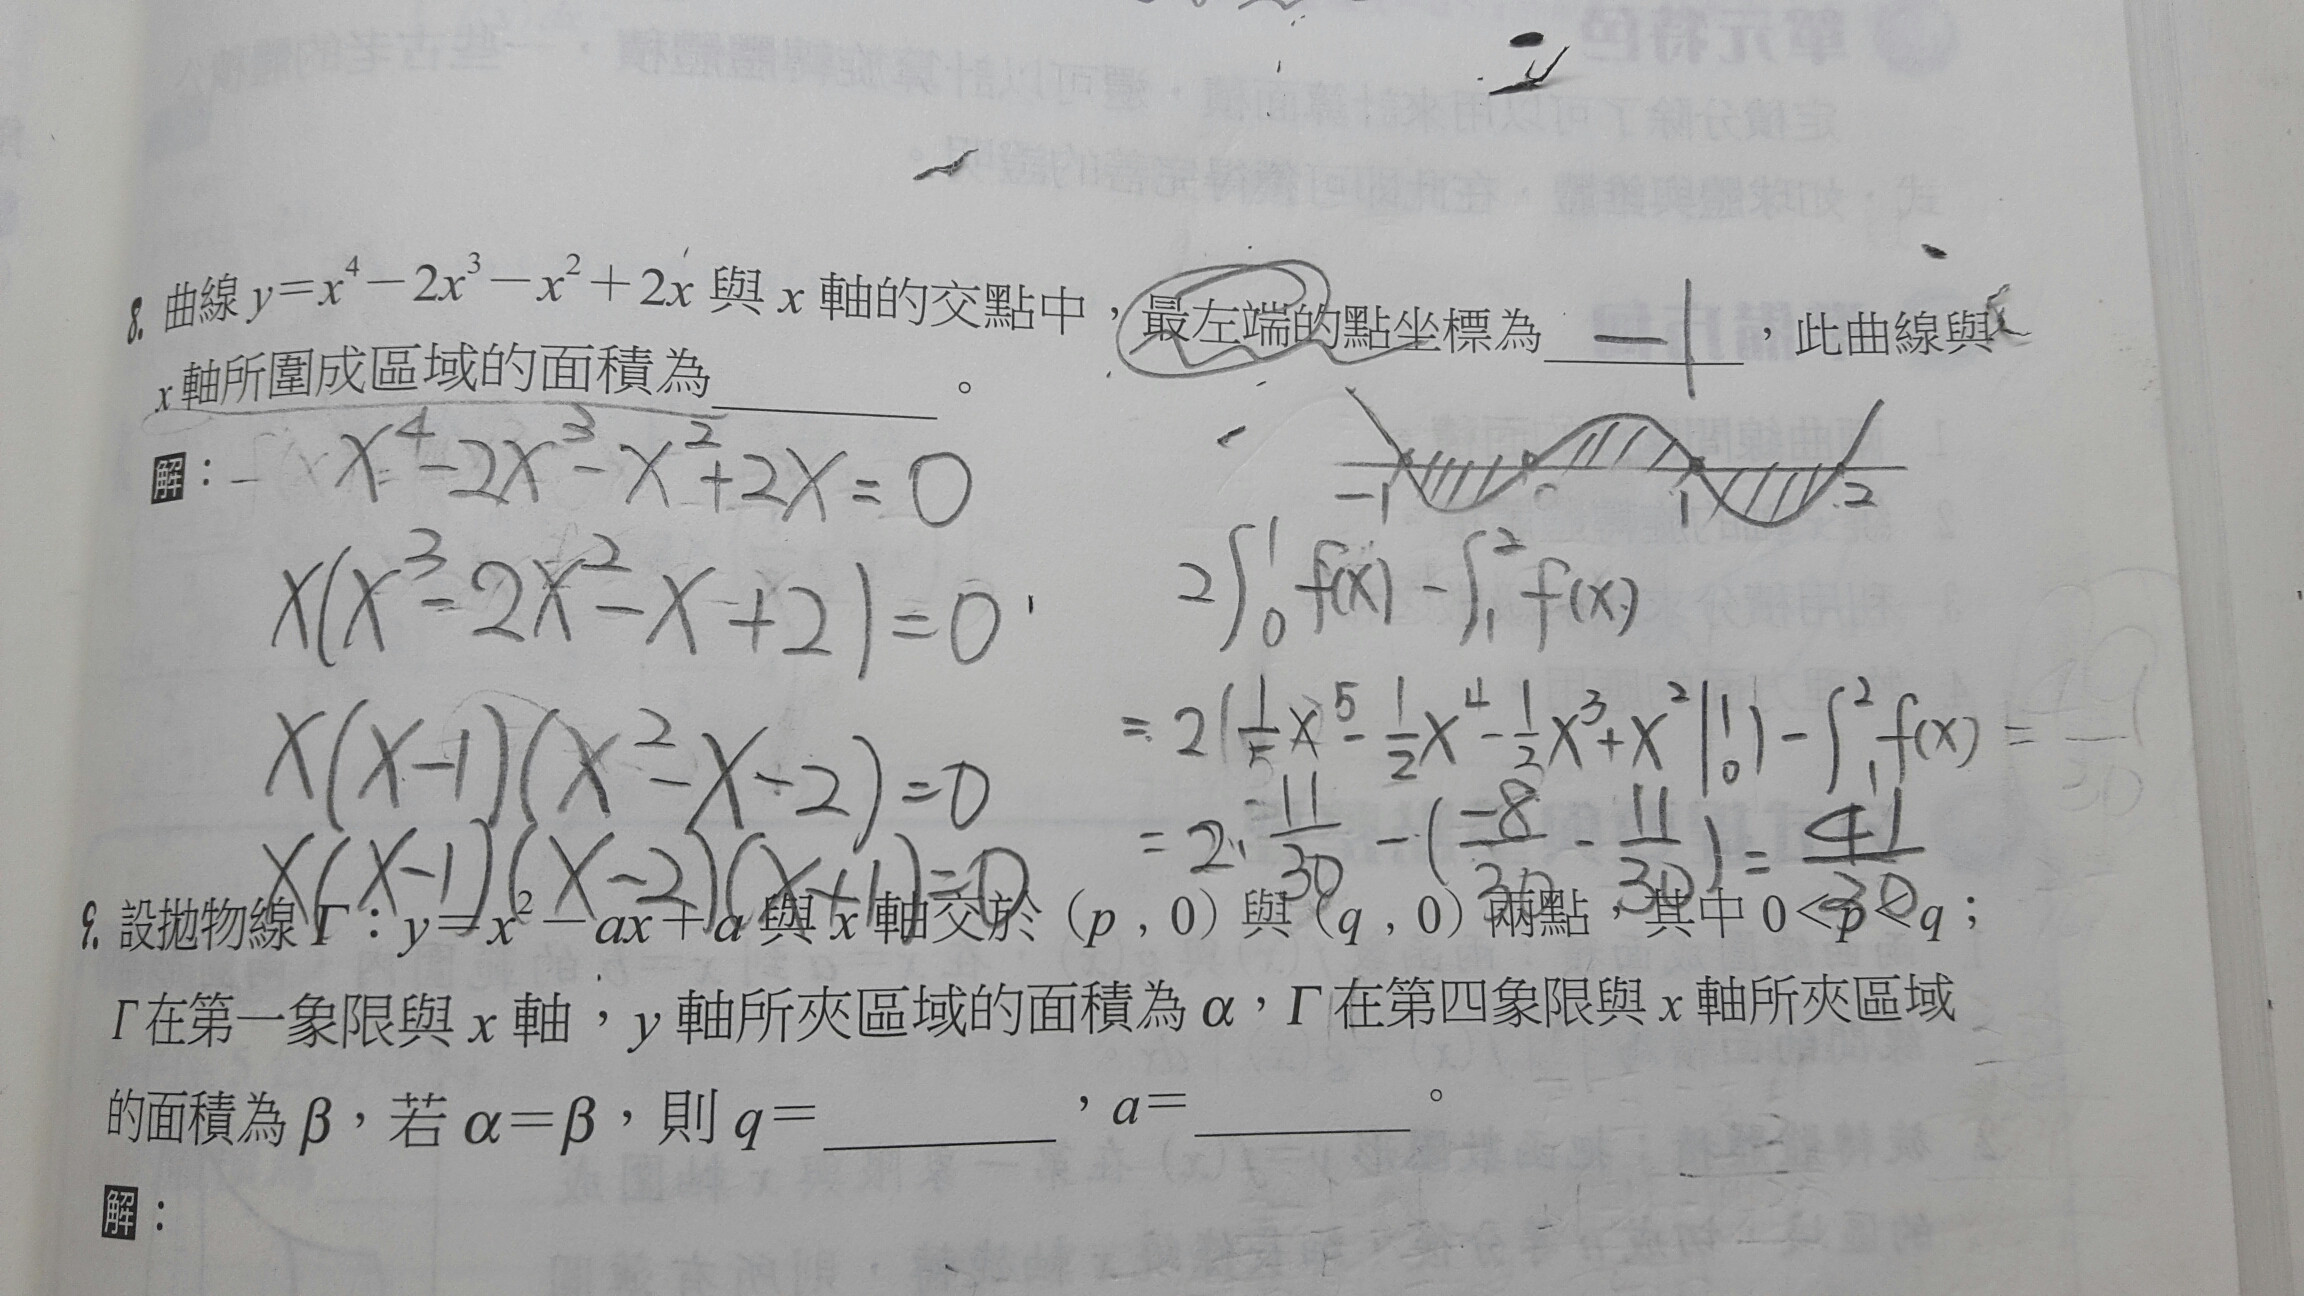 8. 曲線 y＝x⁴－2x³－x²＋2x 與 x 軸的交點中，最左端的點坐標為 －1 ，此曲線與
x 軸所圍成區域的面積為________。
解：
x⁴-2x³-x²+2x=0
x(x³-2x²-x+2)=0
x(x-1)(x²-x-2)=0
x(x-1)(x-2)(x+1)=0
-1 0 1 2
2∫₀¹f(x)-∫₁²f(x)
=2(1/5x⁵-1/2x⁴-1/2x³+x²|₀¹)-∫₁²f(x)=
=2·11/30-(-8/30-11/30)=41/30
9. 設拋物線 Γ：y＝x²－ax＋a 與 x 軸交於（p，0）與（q，0）兩點，其中 0＜p＜q；
Γ 在第一象限與 x 軸，y 軸所夾區域的面積為 α，Γ 在第四象限與 x 軸所夾區域
的面積為 β，若 α＝β，則 q＝________，a＝________。
解：